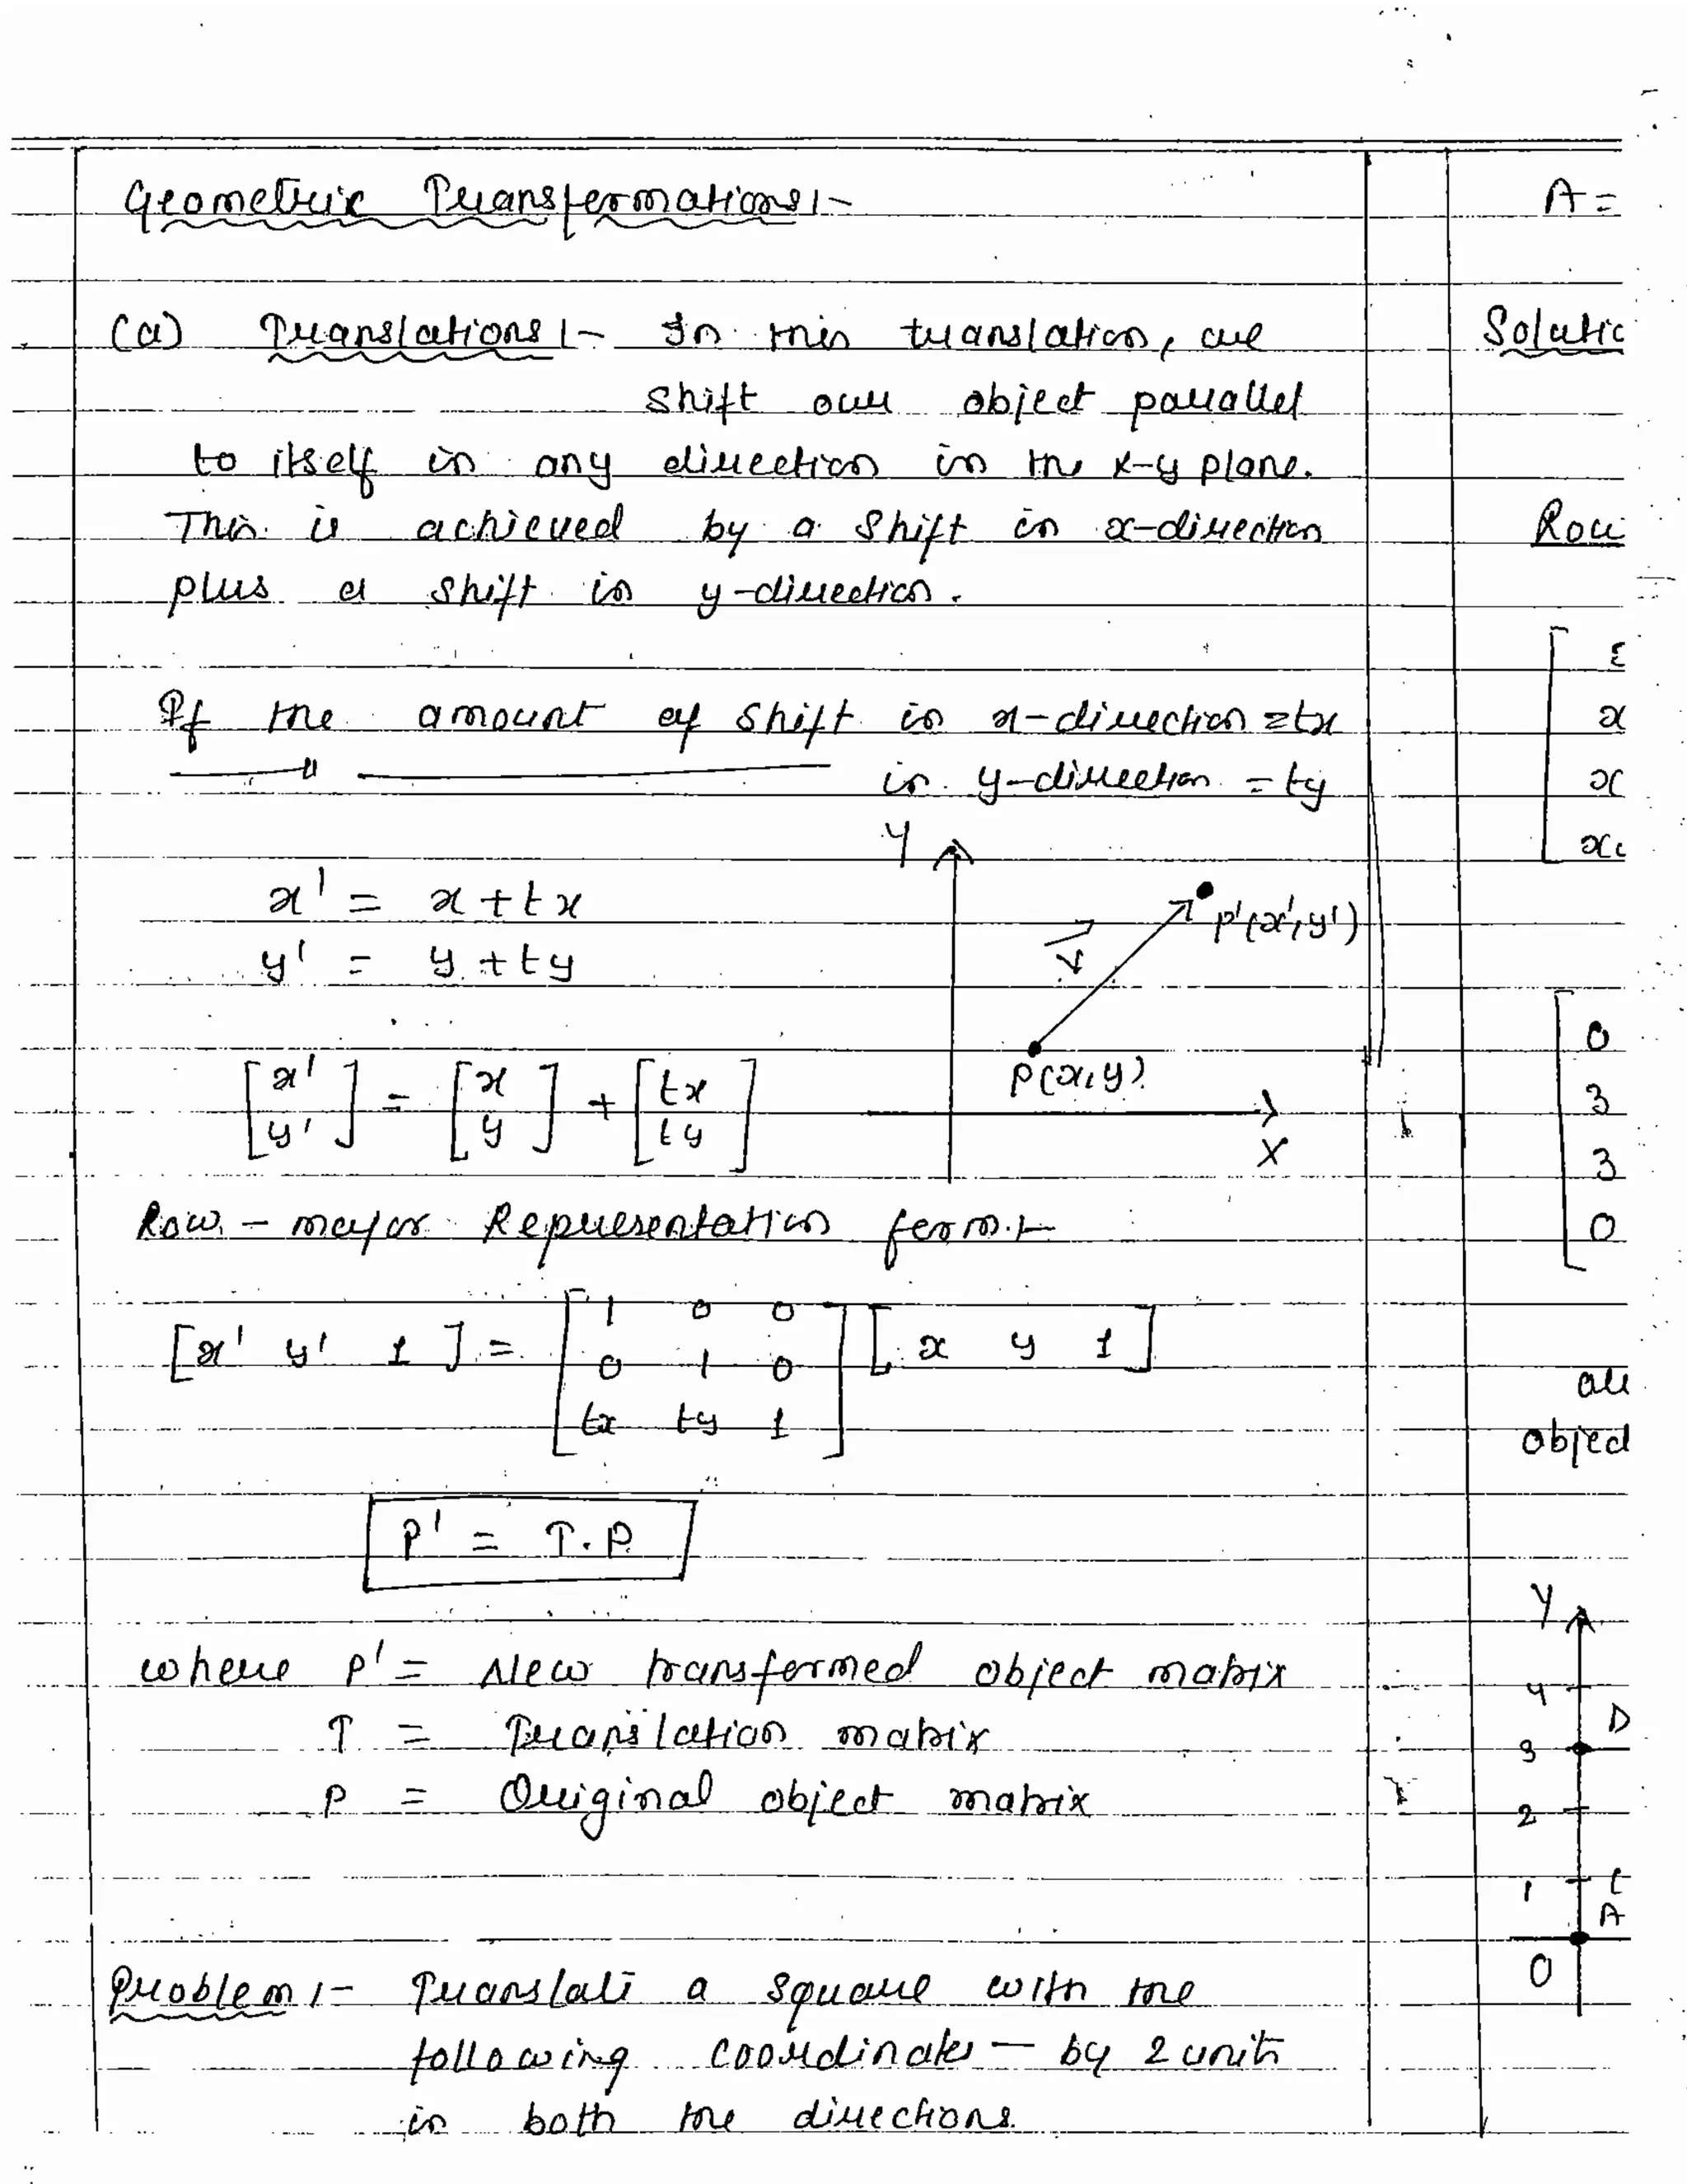 Geometric Transformations:-
(a) Translations:- In this translation, we
shift our object parallel
to itself in any direction in the x-y plane.
This is achieved by a shift in x-direction
plus a shift in y-direction.
If the amount of shift in x-direction = tx
in y-direction = ty
x' = x + tx
y' = y + ty
Y
P'(x', y')
V
P(x, y)
X
[x' y'] = [x y] + [tx ty]
Row-major Representation form:-
[x' y' 1] = [1 0 0
0 1 0
tx ty 1] [x y 1]
P' = T.P
where P' = New transformed object matrix
T = Translation matrix
P = Original object matrix
Problem:- Translate a square with the
following coordinates — by 2 units
in both the directions.
A =
x
x
0
3
3
0
Y
4
D
3
2
1
A
0